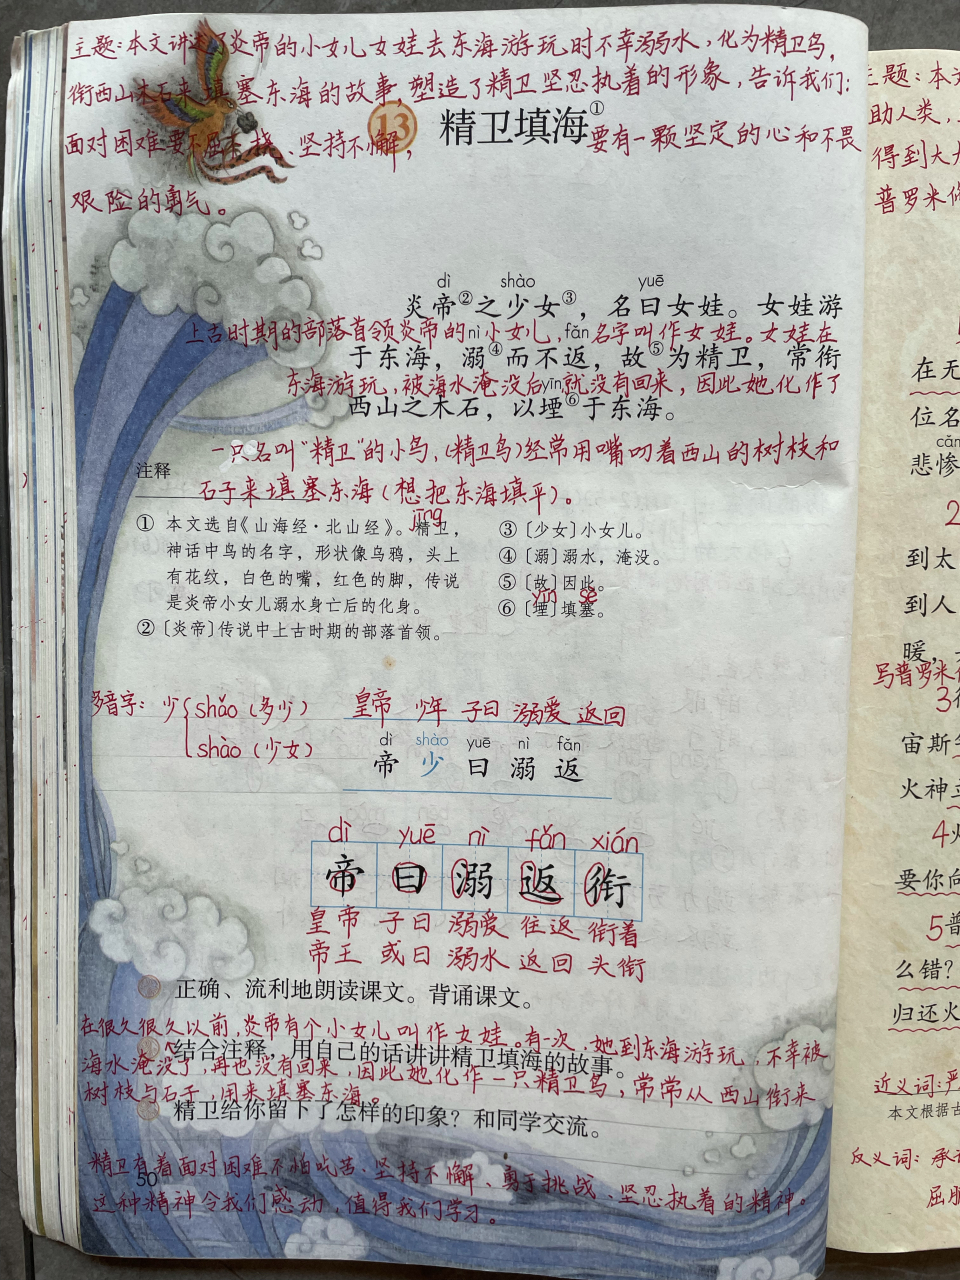 主题:本文讲述了炎帝的小女儿女娃去东海游玩时不幸溺水,化为精卫鸟,
衔西山木石来填塞东海的故事,塑造了精卫坚忍执着的形象,告诉我们:
13 精卫填海①
面对困难要不屈不挠、坚持不懈,要有一颗坚定的心和不畏
艰险的勇气。
dì shào yuē
炎帝②之少女③,名曰女娃。女娃游
上古时期的部落首领炎帝的小女儿,名字叫作女娃。女娃在
nì fǎn
于东海,溺④而不返,故⑤为精卫,常衔
东海游玩,被海水淹没后就没有回来,因此她化作了
yīn
西山之木石,以堙⑥于东海。
一只名叫“精卫”的小鸟,(精卫鸟)经常用嘴叨着西山的树枝和
注释
石子来填塞东海(想把东海填平)。
jīng
① 本文选自《山海经·北山经》。精卫,
神话中鸟的名字,形状像乌鸦,头上
有花纹,白色的嘴,红色的脚,传说
是炎帝小女儿溺水身亡后的化身。
②〔炎帝〕传说中上古时期的部落首领。
③〔少女〕小女儿。
④〔溺〕溺水,淹没。
⑤〔故〕因此。
yīn sè
⑥〔堙〕填塞。
多音字:少 shǎo(多少)
shào(少女)
皇帝 少年 子曰 溺爱 返回
dì shào yuē nì fǎn
帝 少 曰 溺 返
dì yuē nì fǎn xián
帝 曰 溺 返 衔
皇帝 子曰 溺爱 往返 衔着
帝王 或曰 溺水 返回 头衔
正确、流利地朗读课文。背诵课文。
在很久很久以前,炎帝有个小女儿叫作女娃。有一次,她到东海游玩,不幸被
结合注释,用自己的话讲讲精卫填海的故事。
海水淹没了,再也没有回来,因此她化作一只精卫鸟,常常从西山衔来
树枝与石子,用来填塞东海。
精卫给你留下了怎样的印象?和同学交流。
精卫有着面对困难不怕吃苦、坚持不懈、勇于挑战、坚忍执着的精神。
50
这种精神令我们感动,值得我们学习。
主题:本文
助人类,
得到大
普罗米修
在无
位名
cǎn
悲惨
2
到太
到人
暖,
写普罗米
3
宙斯
火神
4
要你向
5普
么错?
归还火
近义词:严
本文根据古
反义词:承认
屈服